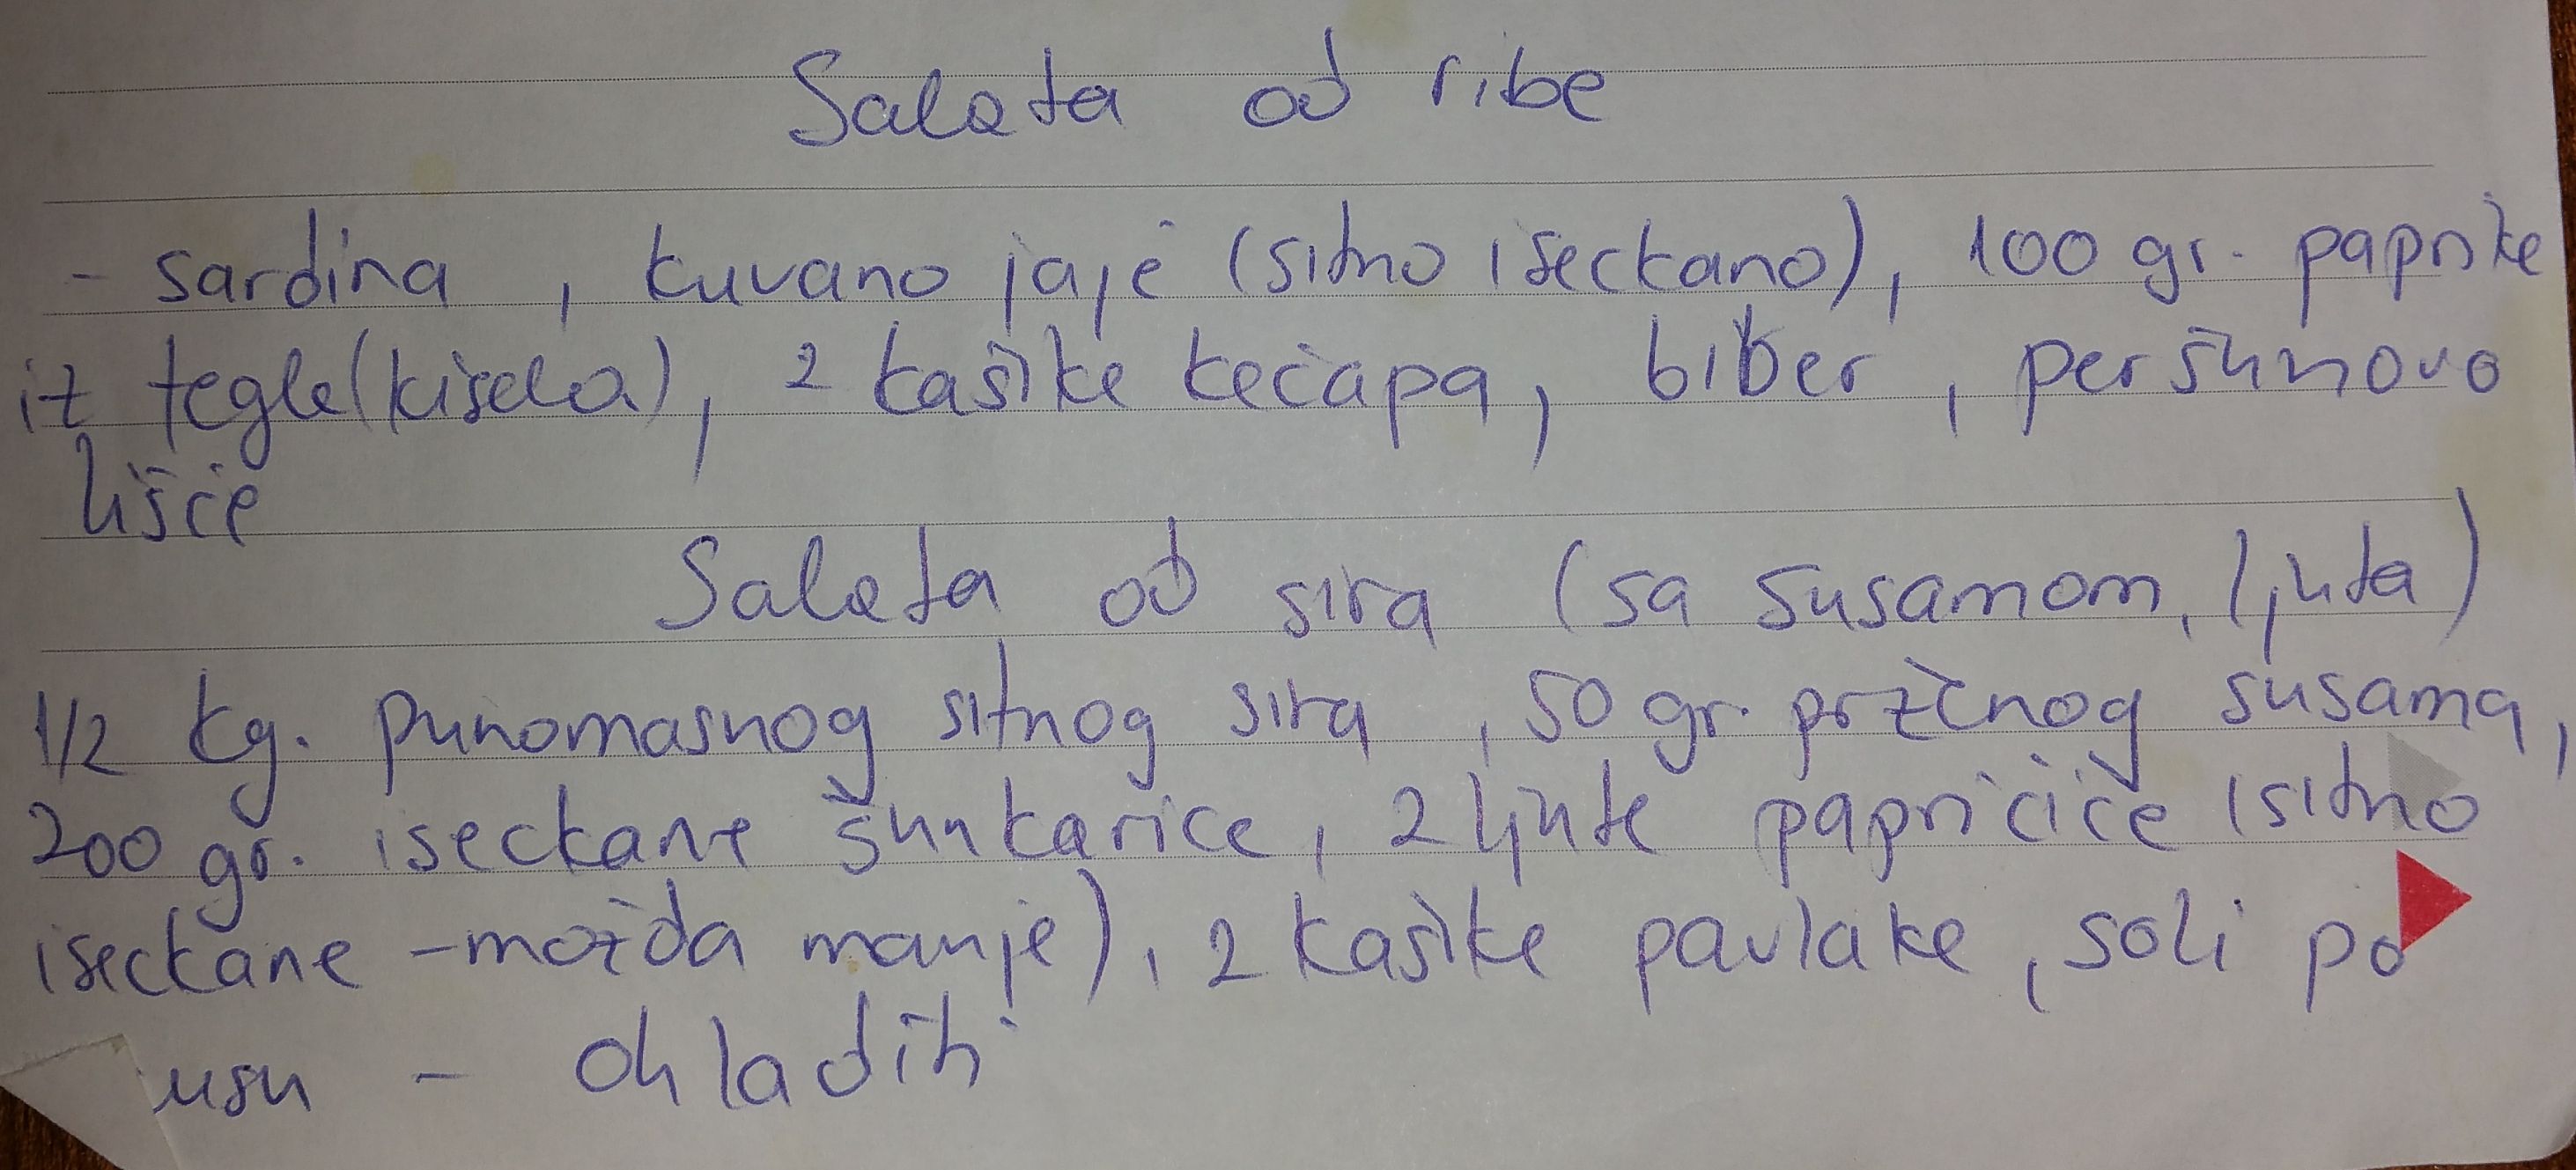 Salata od ribe
- sardina , kuvano jaje (sitno iseckano), 100 gr. paprike
iz tegle (kisela), 2 kašike kečapa, biber , peršunovo
lišće
Salata od sira (sa susamom, ljuta)
1/2 kg. punomasnog sitnog sira , 50 gr. prženog susama,
200 gr. iseckane šunkarice, 2 ljute papričice (sitno
iseckane - možda manje), 2 kašike pavlake, soli po
usu - ohladiti